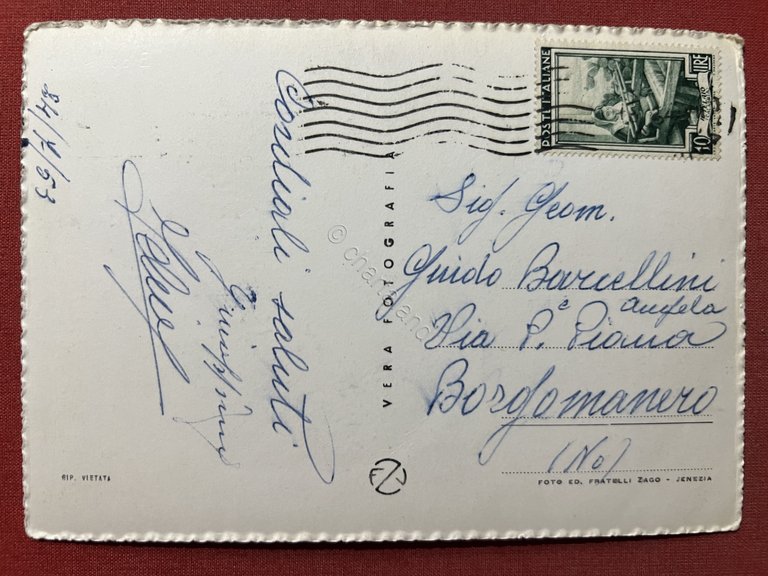 24/7/53
Cordiali saluti
Giuseppina
VERA FOTOGRAFIA
RIP. VIETATA
POSTE ITALIANE
10 LIRE
Sig. Geom.
Guido Barcellini
Angela
Via P.ᵉ Piana
Borgomanero
(No)
FOTO ED. FRATELLI ZAGO - JENEZIA
FZ